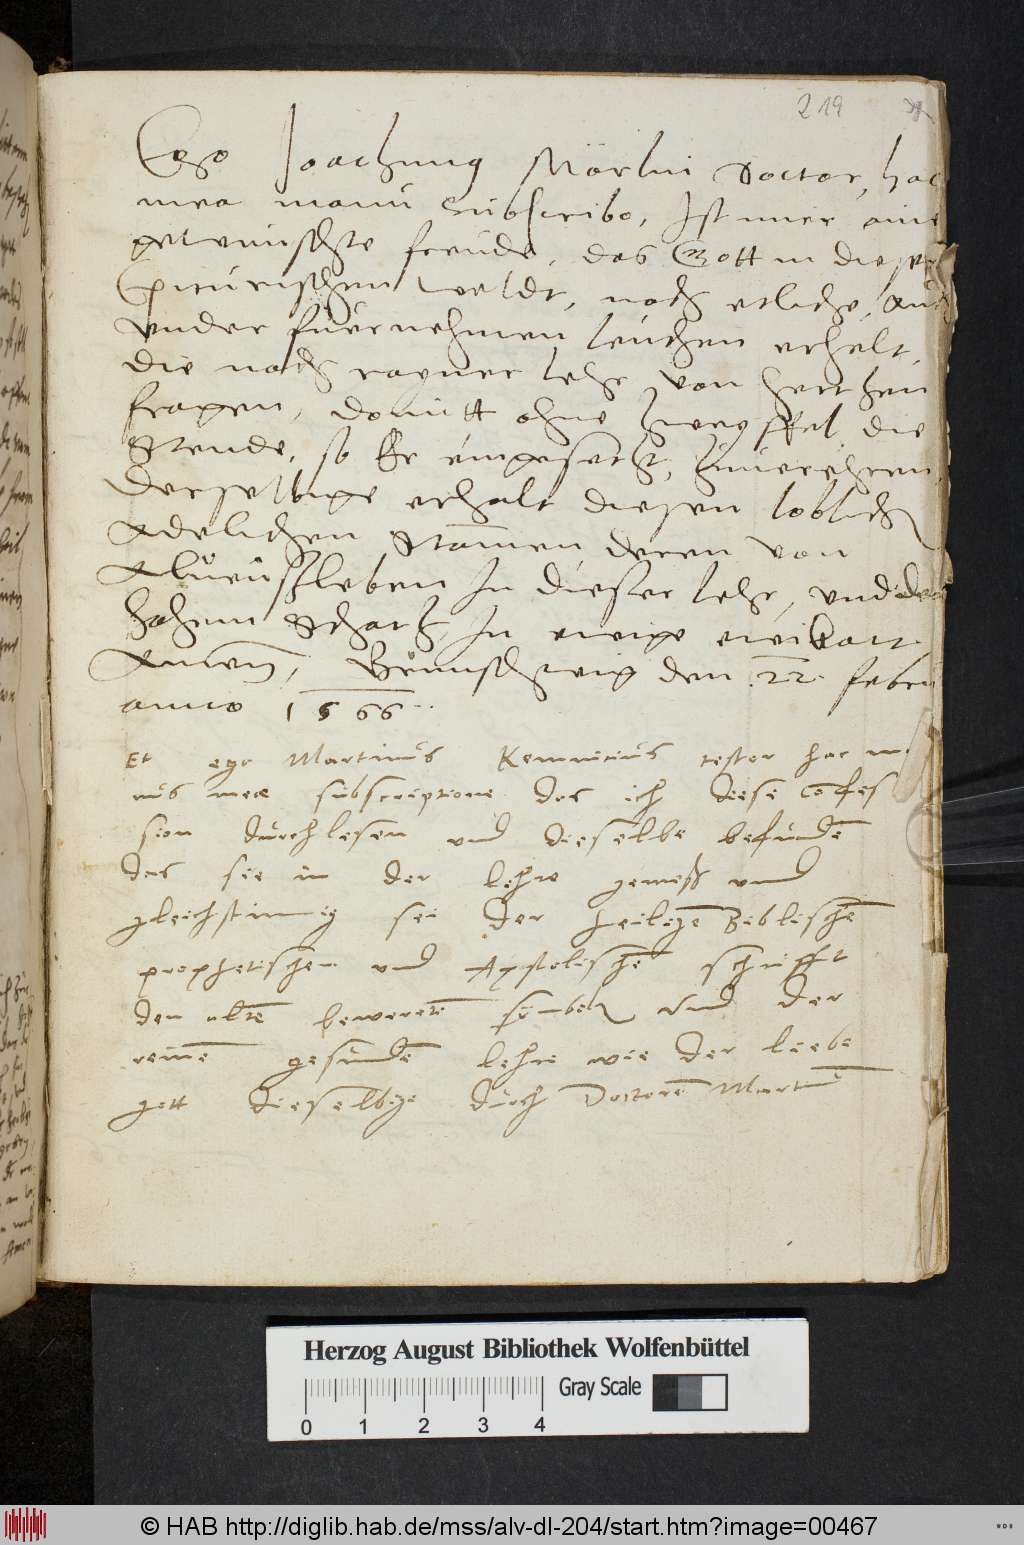 219
Ego Joachimus Mörlin Doctor, hac
mea manu subscribo, Ist mier eine
gewunschte freude, das Gott in dieser
Epicurischen weldt, noch etliche, auch
under fuernehmen leuthen erhelt,
die nach rayner lehr von herthen
fragen, domitt ohne zweyffel die
Stende, so Er eingesetzt, zuuerehren
derselbige erhalt diesen loblich
Adelichen Stammen deren von
Aluenßleben In dieser lehr, und
hohem Schatz, In ewige ewikait
Amen, Brunschweig den 22. febru
anno 1566
Et ego Martinus Kemnicius testor hac ma
nus meae subscriptione das ich diese Confes
sion durchlesen und dieselbe befunde
das sie in der lehre gemeß und
gleichstimmig sei der heilige Biblische
prophetischen und Apostolische schrifft
den alte bewerete symbol und der
reine gesunde lehre wie der liebe
gott dieselbige durch Doctore Martinu
Herzog August Bibliothek Wolfenbüttel
Gray Scale
0 1 2 3 4
© HAB http://diglib.hab.de/mss/alv-dl-204/start.htm?image=00467